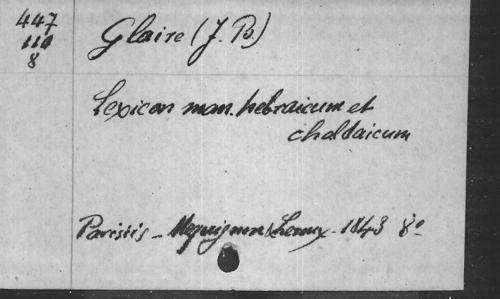 447
110
8
Glaire (J. B.)
Lexicon man. hebraicum et
chaldaicum
Parisiis - Mequignon Leroux - 1843 8º